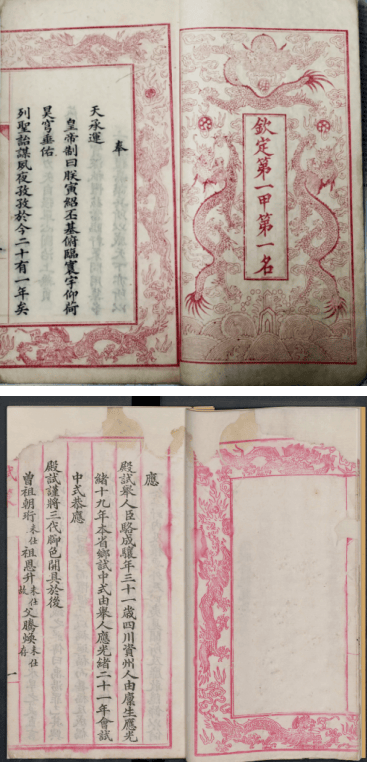 欽定第一甲第一名
奉
天承運
皇帝制曰朕寅紹丕基俯臨寰宇仰荷
昊穹垂佑
列聖詒謀夙夜孜孜於今二十有一年矣
應
殿試舉人臣駱成驤年三十一歲四川資州人由廩生應光
緒十九年本省鄉試中式由舉人應光緒二十一年會試
中式恭應
殿試謹將三代腳色開具於後
曾祖朝珩未仕祖恩升未仕故父騰煥未仕存
一